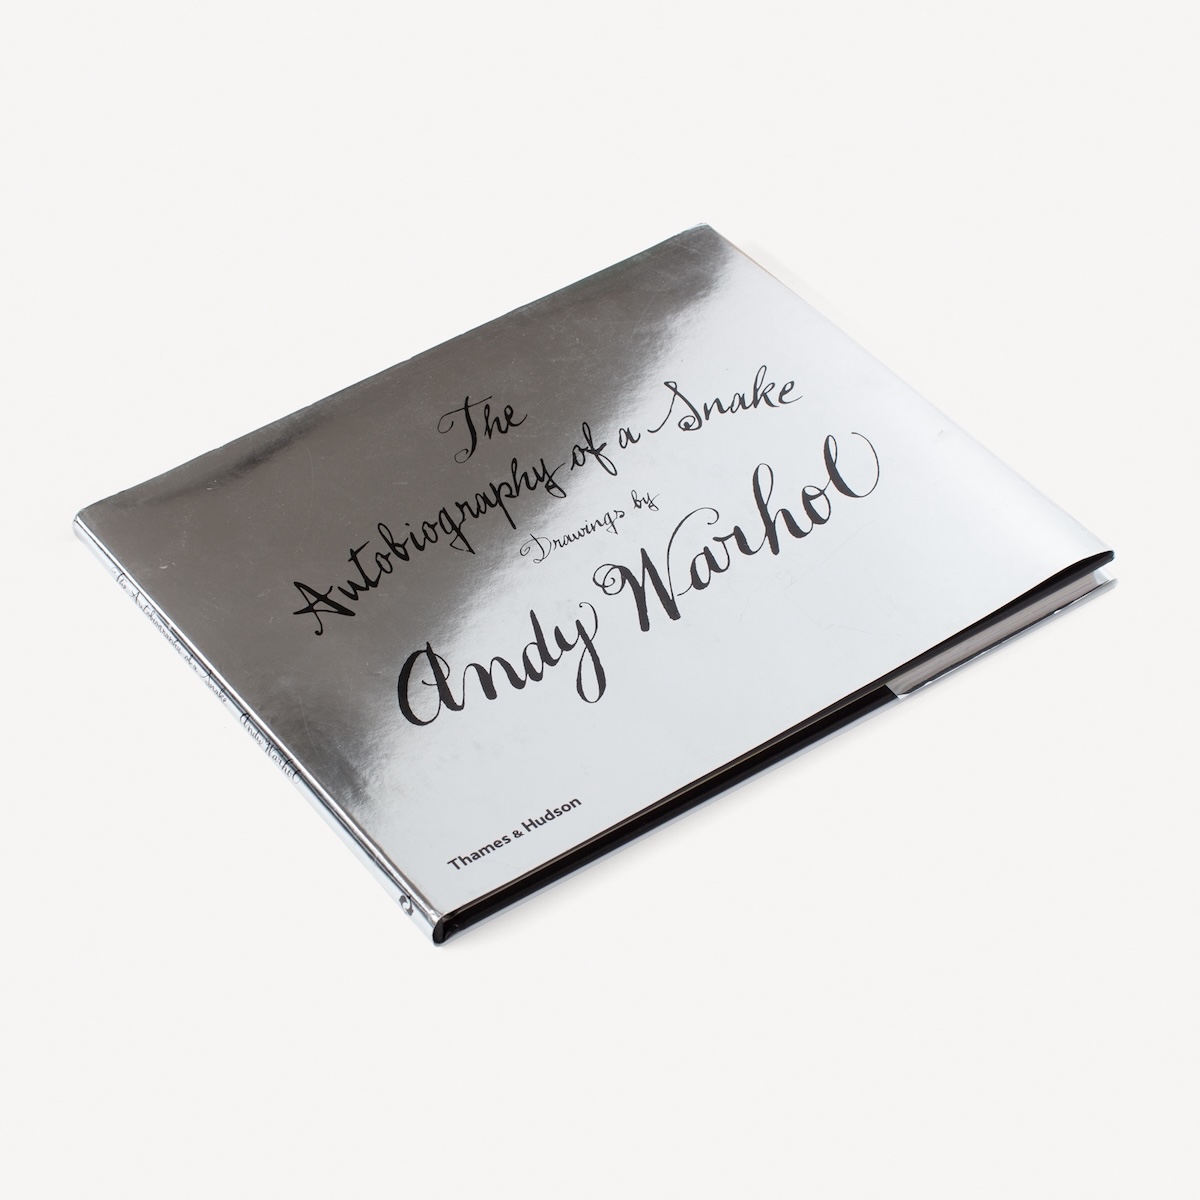 The
Autobiography of a Snake
Drawings by
Andy Warhol
Thames & Hudson
The Autobiography of a Snake Andy Warhol